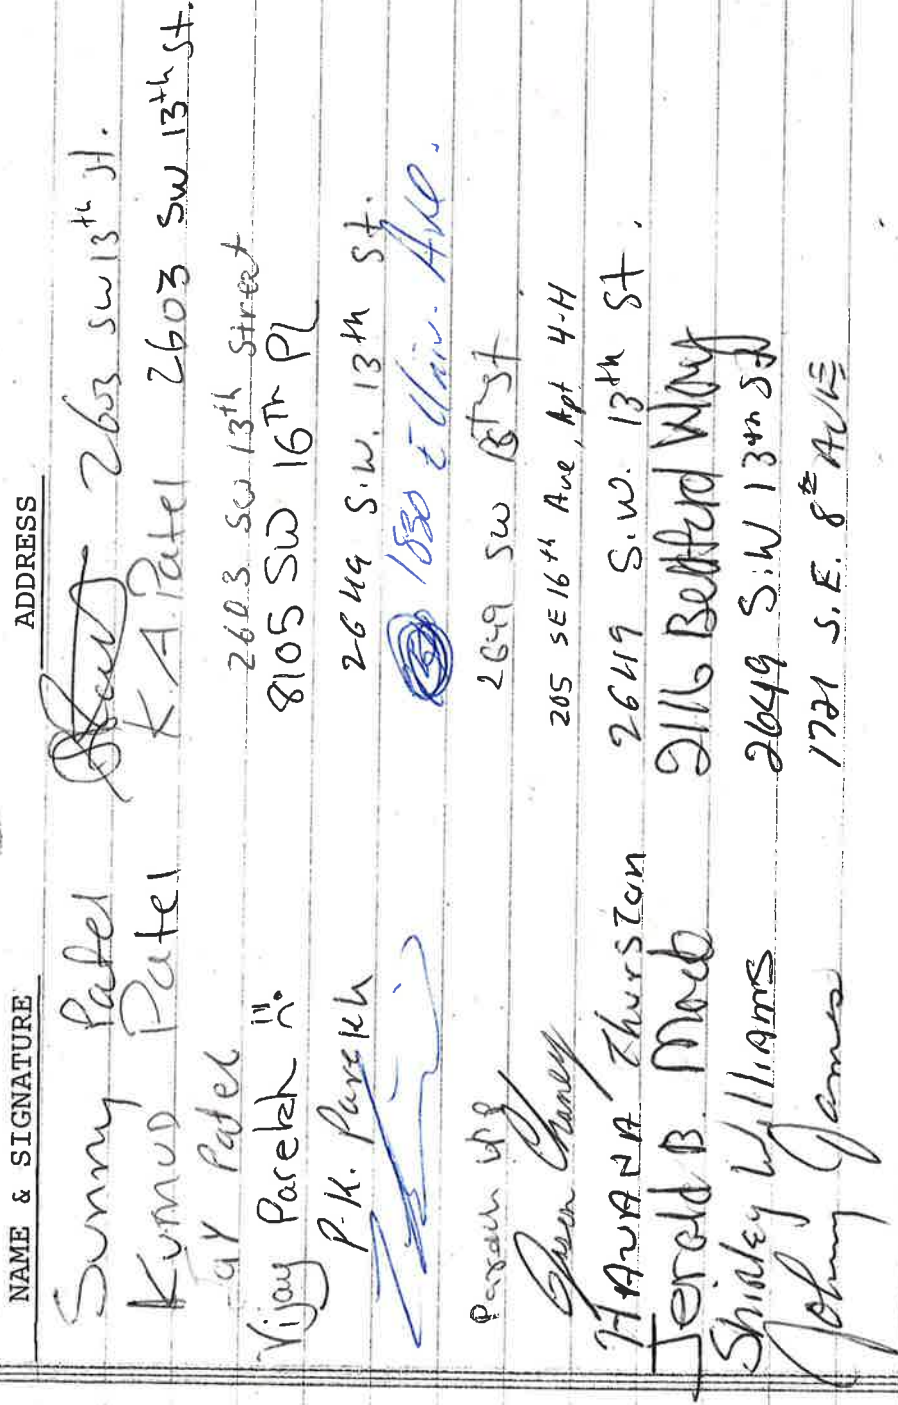 NAME & SIGNATURE ADDRESS
Sunny Patel 2603 SW 13th st.
Kumud Patel K.A. Patel 2603 SW 13th st.
Patel 2603 SW 13th Street
Vijay Parekh 8105 SW 16Th PL
P.K. Parekh 2649 S.W. 13th st.
1830 Ave.
2649 SW st
Jason Chaney 205 SE 16th Ave, Apt 4-H
Thurston 2649 S.W. 13th st.
Jerald B. 2116 Way
Shirley Williams 2649 S.W 13th St
Johnny James 1721 S.E. 8th AVE